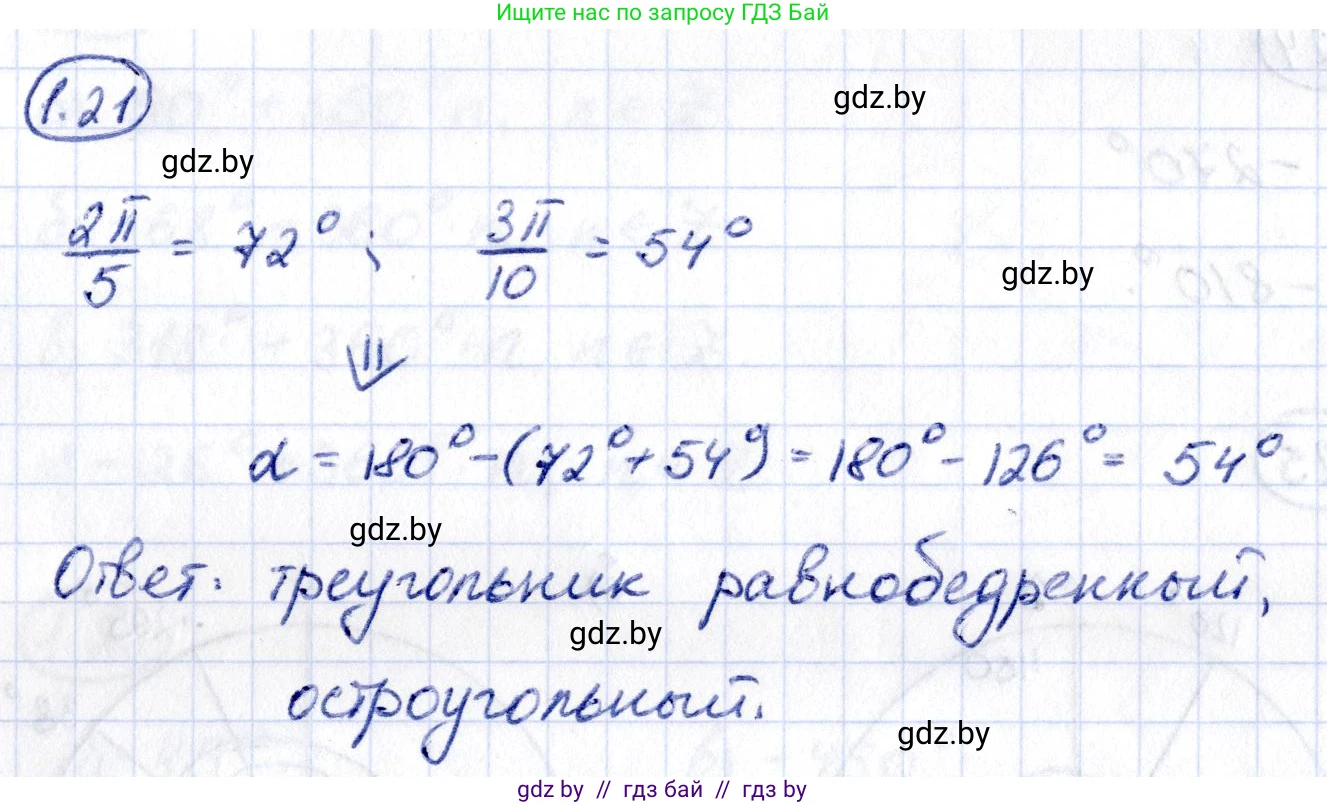 Ищите нас по запросу ГДЗ Бай
1.21
gdz.by
gdz.by
2π/5 = 72° ; 3π/10 = 54°
gdz.by
⇓
α = 180° - (72° + 54°) = 180° - 126° = 54°
gdz.by
Ответ: треугольник равнобедренный,
gdz.by
остроугольный.
gdz.by
gdz by // гдз бай // гдз by